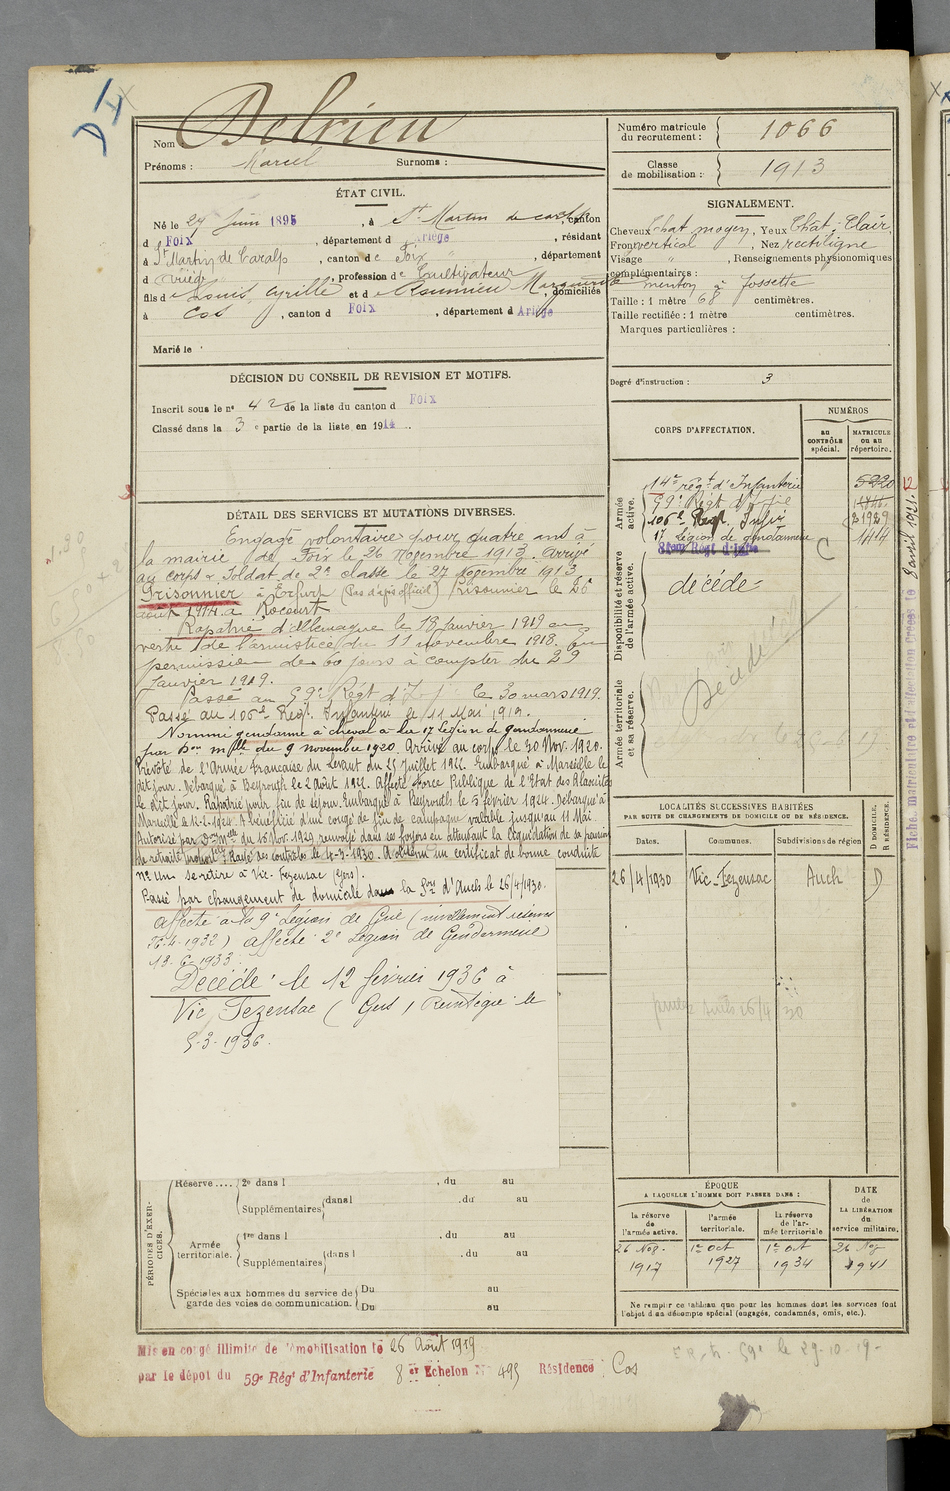 Nom Delrieu
Prénoms : Marcel Surnoms :
Numéro matricule du recrutement : 1066
Classe de mobilisation : 1913
ÉTAT CIVIL.
Né le 24 Juin 1895, à St Martin de Caralp, canton
d Foix, département d Ariège, résidant
à St Martin de Caralp, canton de Foix, département
d Ariège, profession de Cultivateur
fils de Louis, Cyrille et de Roumieu Marguerite, domiciliés
à Cos, canton d Foix, département d Ariège
Marié le
SIGNALEMENT.
Cheveux Chat moyen, Yeux Chat. Clair,
Front vertical, Nez rectiligne
Visage " , Renseignements physionomiques
complémentaires :
menton à fossette
Taille : 1 mètre 68 centimètres.
Taille rectifiée : 1 mètre centimètres.
Marques particulières :
Degré d'instruction : 3
DÉCISION DU CONSEIL DE REVISION ET MOTIFS.
Inscrit sous le n° 42 de la liste du canton d Foix
Classé dans la 3e partie de la liste en 1914.
DÉTAIL DES SERVICES ET MUTATIONS DIVERSES.
Engagé volontaire pour quatre ans à
la mairie de Foix le 26 Novembre 1913. Arrivé
au corps & Soldat de 2e classe le 27 Novembre 1913
Prisonnier à Erfurt (Pas d'avis officiel) Prisonnier le 30
août 1914 à Rocourt
Rapatrié d'Allemagne le 18 Janvier 1919 en
vertu de l'armistice du 11 novembre 1918. En
permission de 60 jours à compter du 29
Janvier 1919.
Passé au 59e Régt d'Infie le 30 mars 1919.
Passé au 106e Régt. Infanterie le 11 Mai 1919.
Nommé gendarme à cheval à la 17e Légion de Gendarmerie
par Don mlle du 9 novembre 1920. Arrivé au corps le 30 Nov. 1920.
Prévôté de l'Armée Française du Levant du 25 Juillet 1922. Embarqué à Marseille le
dit jour. Débarqué à Beyrouth le 2 Août 1922. Affecté Force Publique de l'Etat des Alaouites
le dit jour. Rapatrié pour fin de séjour. Embarqué à Beyrouth le 5 février 1924. Débarqué à
Marseille le 12-2-1924. A bénéficié d'un congé de fin de campagne valable jusqu'au 11 Mai.
Autorisé par Don mlle du 16 Nov. 1929 renvoyé dans ses foyers en attendant la liquidation de sa pension
de retraite proportlle. Rayé des contrôles le 4-3-1930. A obtenu un certificat de bonne conduite
N° Un se retire à Vic-Fezensac (Gers).
Passé par changement de domicile dans la Son d'Auch le 26/4/1930.
affecté à la 9e Légion de Gnie
16-4-1932) affecté 2e Légion de Gendarmerie
13-6-1933
Décédé le 12 février 1936 à
Vic Fezensac (Gers)
5-3-1936.
CORPS D'AFFECTATION.
NUMÉROS
au CONTRÔLE spécial.
MATRICULE ou au répertoire.
Armée active.
14e régt d'Infanterie 5220
59e Régt d'Infie
106e Regt. Infie
17 Légion de gendarmerie C 144
Disponibilité et réserve de l'armée active.
décédé
Armée territoriale et sa réserve.
Décédé
Fiche matriculaire et d'affectation
LOCALITÉS SUCCESSIVES HABITÉES
PAR SUITE DE CHANGEMENTS DE DOMICILE OU DE RÉSIDENCE.
Dates. Communes. Subdivisions de région D DOMICILE. R RÉSIDENCE.
26/4/1930 Vic-Fezensac Auch D
PÉRIODES D'EXERCICES.
Réserve .... 2e dans l , du au
Supplémentaires dans l , du au
Armée territoriale. 1re dans l , du au
Supplémentaires dans l , du au
Spéciales aux hommes du service de garde des voies de communication. Du au
Du au
ÉPOQUE
A LAQUELLE L'HOMME DOIT PASSER DANS :
la réserve de l'armée active. l'armée territoriale. la réserve de l'armée territoriale
DATE de LA LIBÉRATION du service militaire.
26 Nov. 1917 1er Oct 1927 1er Oct 1934 26 Nov 1941
Ne remplir ce tableau que pour les hommes dont les services font
l'objet d'un décompte spécial (engagés, condamnés, omis, etc.).
Mis en congé illimité de démobilisation le 26 Août 1919
par le dépôt du 59e Régt d'Infanterie 8er Echelon N° 495 Résidence : Cos